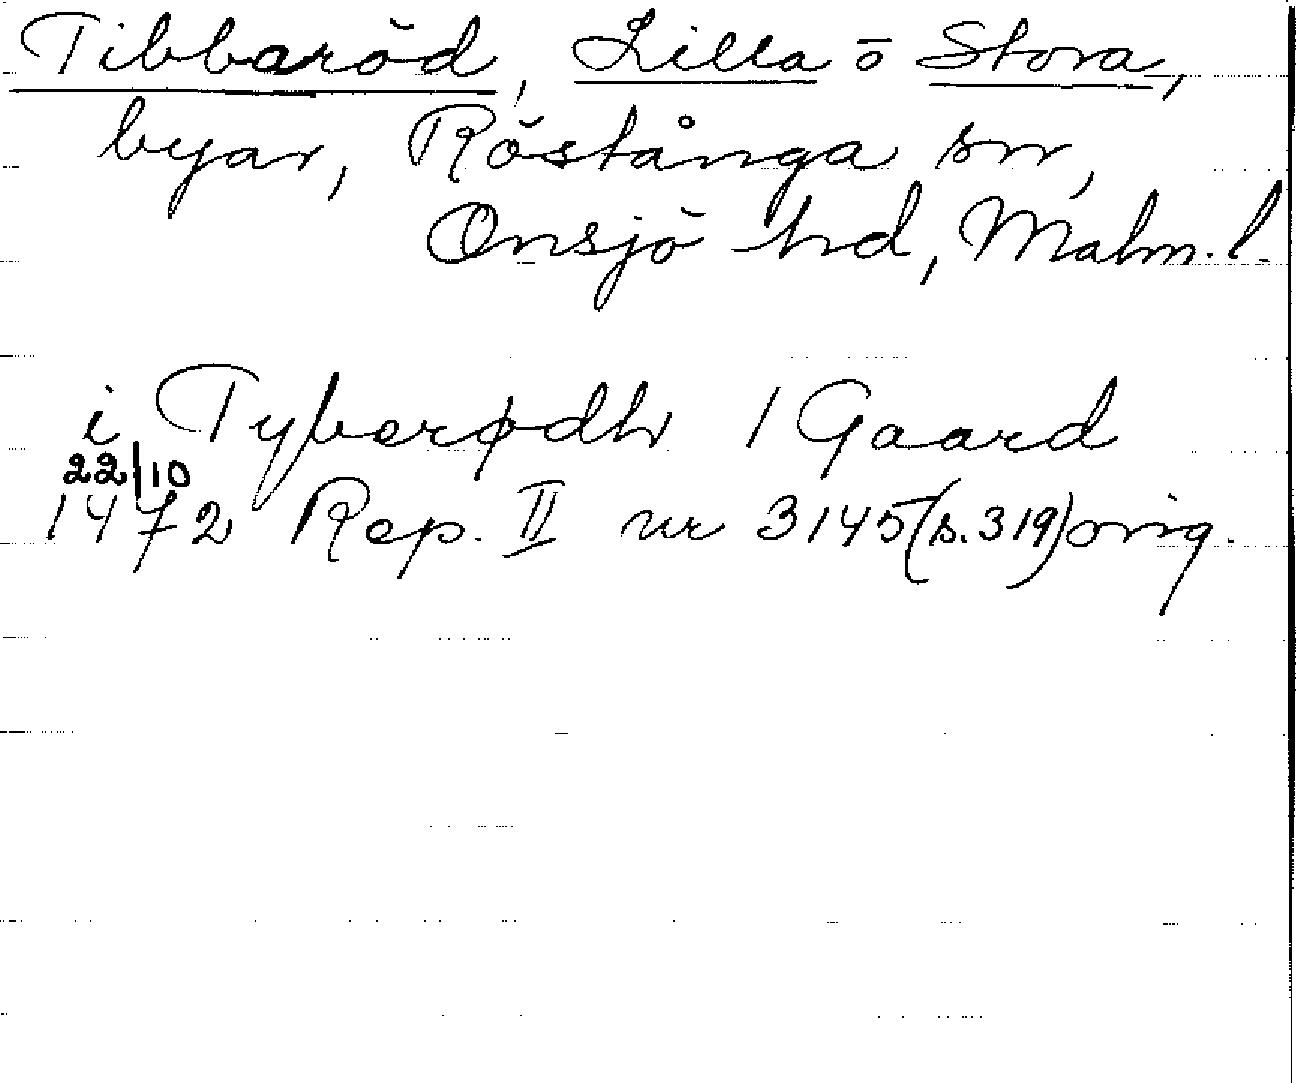 Tibbaröd, Lilla o Stora,
byar, Röstånga sn,
Onsjö hd, Malm. l.
i Tyberødh 1 Gaard
22/10
1472 Rep. II nr 3145 (s. 319) orig.